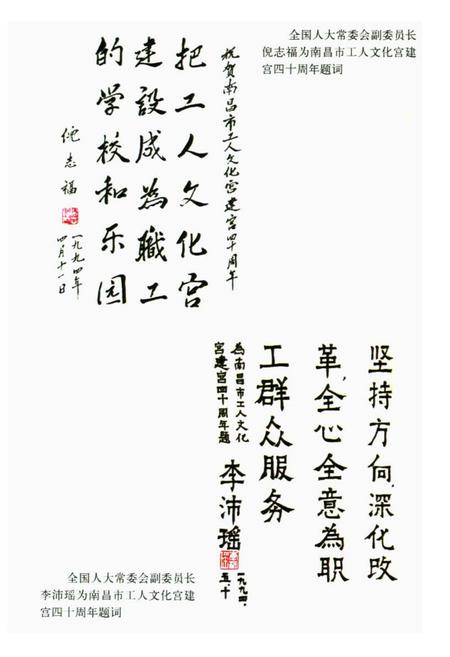 全国人大常委会副委员长
倪志福为南昌市工人文化宫建
宫四十周年题词
祝贺南昌市工人文化宫建宫四十周年
把工人文化宫
建設成為職工
的学校和乐园
倪志福
一九九四年
四月十一日
坚持方向,深化改
革,全心全意為职
工群众服务
為南昌市工人文化
宫建宫四十周年题
李沛瑶
一九九四.
五.十
全国人大常委会副委员长
李沛瑶为南昌市工人文化宫建
宫四十周年题词